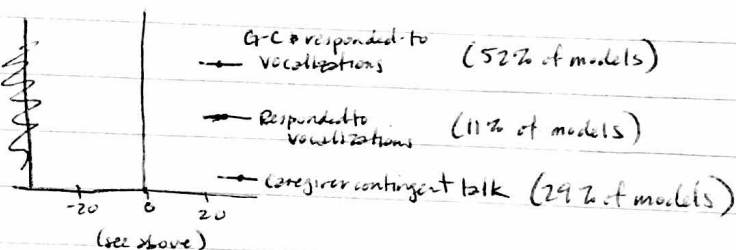 G-C responded-to
vocalizations (52% of models)
Responded to
vocalizations (11% of models)
Caregiver contingent talk (29% of models)
-20 0 20
(see above)